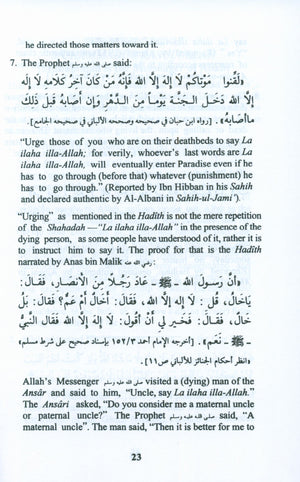 he directed those matters toward it.
7. The Prophet صلى الله عليه وسلم said:
«ولَقِّنوا مَوْتاكُمْ لا إِلَهَ إِلاَّ اللَّه فَإِنَّهُ مَنْ كَانَ آخِرَ كَلامِهِ لا إِلَهَ
إِلاَّ اللَّه دَخَلَ الجَـنَّـةَ يَوْمـاً مِنَ الـدَّهْرِ وَإِن أَصَابَهُ قَبلَ ذلكَ
مَاأصابَهُ». [رواه ابن حبان في صحيحه وصححه الألباني في صحيحه الجامع].
"Urge those of you who are on their deathbeds to say La
ilaha illa-Allah; for verily, whoever's last words are La
ilaha illa-Allah, will eventually enter Paradise even if he
has to go through (before that) whatever (punishment) he
has to go through." (Reported by Ibn Hibban in his Sahih
and declared authentic by Al-Albani in Sahih-ul-Jami').
"Urging" as mentioned in the Hadith is not the mere repetition
of the Shahadah —"La ilaha illa-Allah" in the presence of the
dying person, as some people have understood of it, rather it is
to instruct him to say it. The proof for that is the Hadith
narrated by Anas bin Malik رضي الله عنه:
«أنَّ رسولَ اللَّه - ﷺ - عَادَ رَجُـلاً مِنَ الأَنْصَارِ، فَقَالَ:
يَاخَالُ، قُل: لا إِلَهَ إِلاَّ اللَّه، فَقَالَ: أَخَالٌ أَمْ عَمٌّ؟ فَقالَ: بَلْ
خَالٌ، فَقالَ: فَخَير لِي أَنْ أقُولَ: لا إِلَهَ إِلاَّ اللَّه فَقَالَ النَّبِيُّ
- ﷺ - نَعَم». [أخرجه الإمام أحمد ١٥٢/٣ بإسناد صحيح على شرط مسلم»
«انظر أحكام الجنائز للألباني ص١١].
Allah's Messenger صلى الله عليه وسلم visited a (dying) man of the
Ansâr and said to him, "Uncle, say La ilaha illa-Allah."
The Ansâri asked, "Do you consider me a maternal uncle
or paternal uncle?" The Prophet صلى الله عليه وسلم said, "A
maternal uncle". The man said, "Then it is better for me to
23